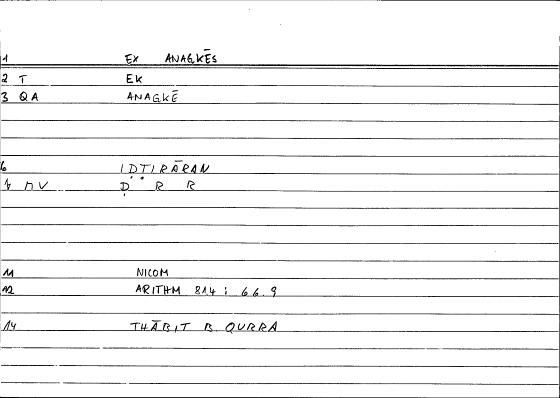 1 EX ANAGKĒS
2 T EK
3 QA ANAGKĒ
6 IḌṬIRĀRAN
7 MV Ḍ R R
11 NICOM
12 ARITHM 814 : 66.9
14 THĀBIT B. QURRA